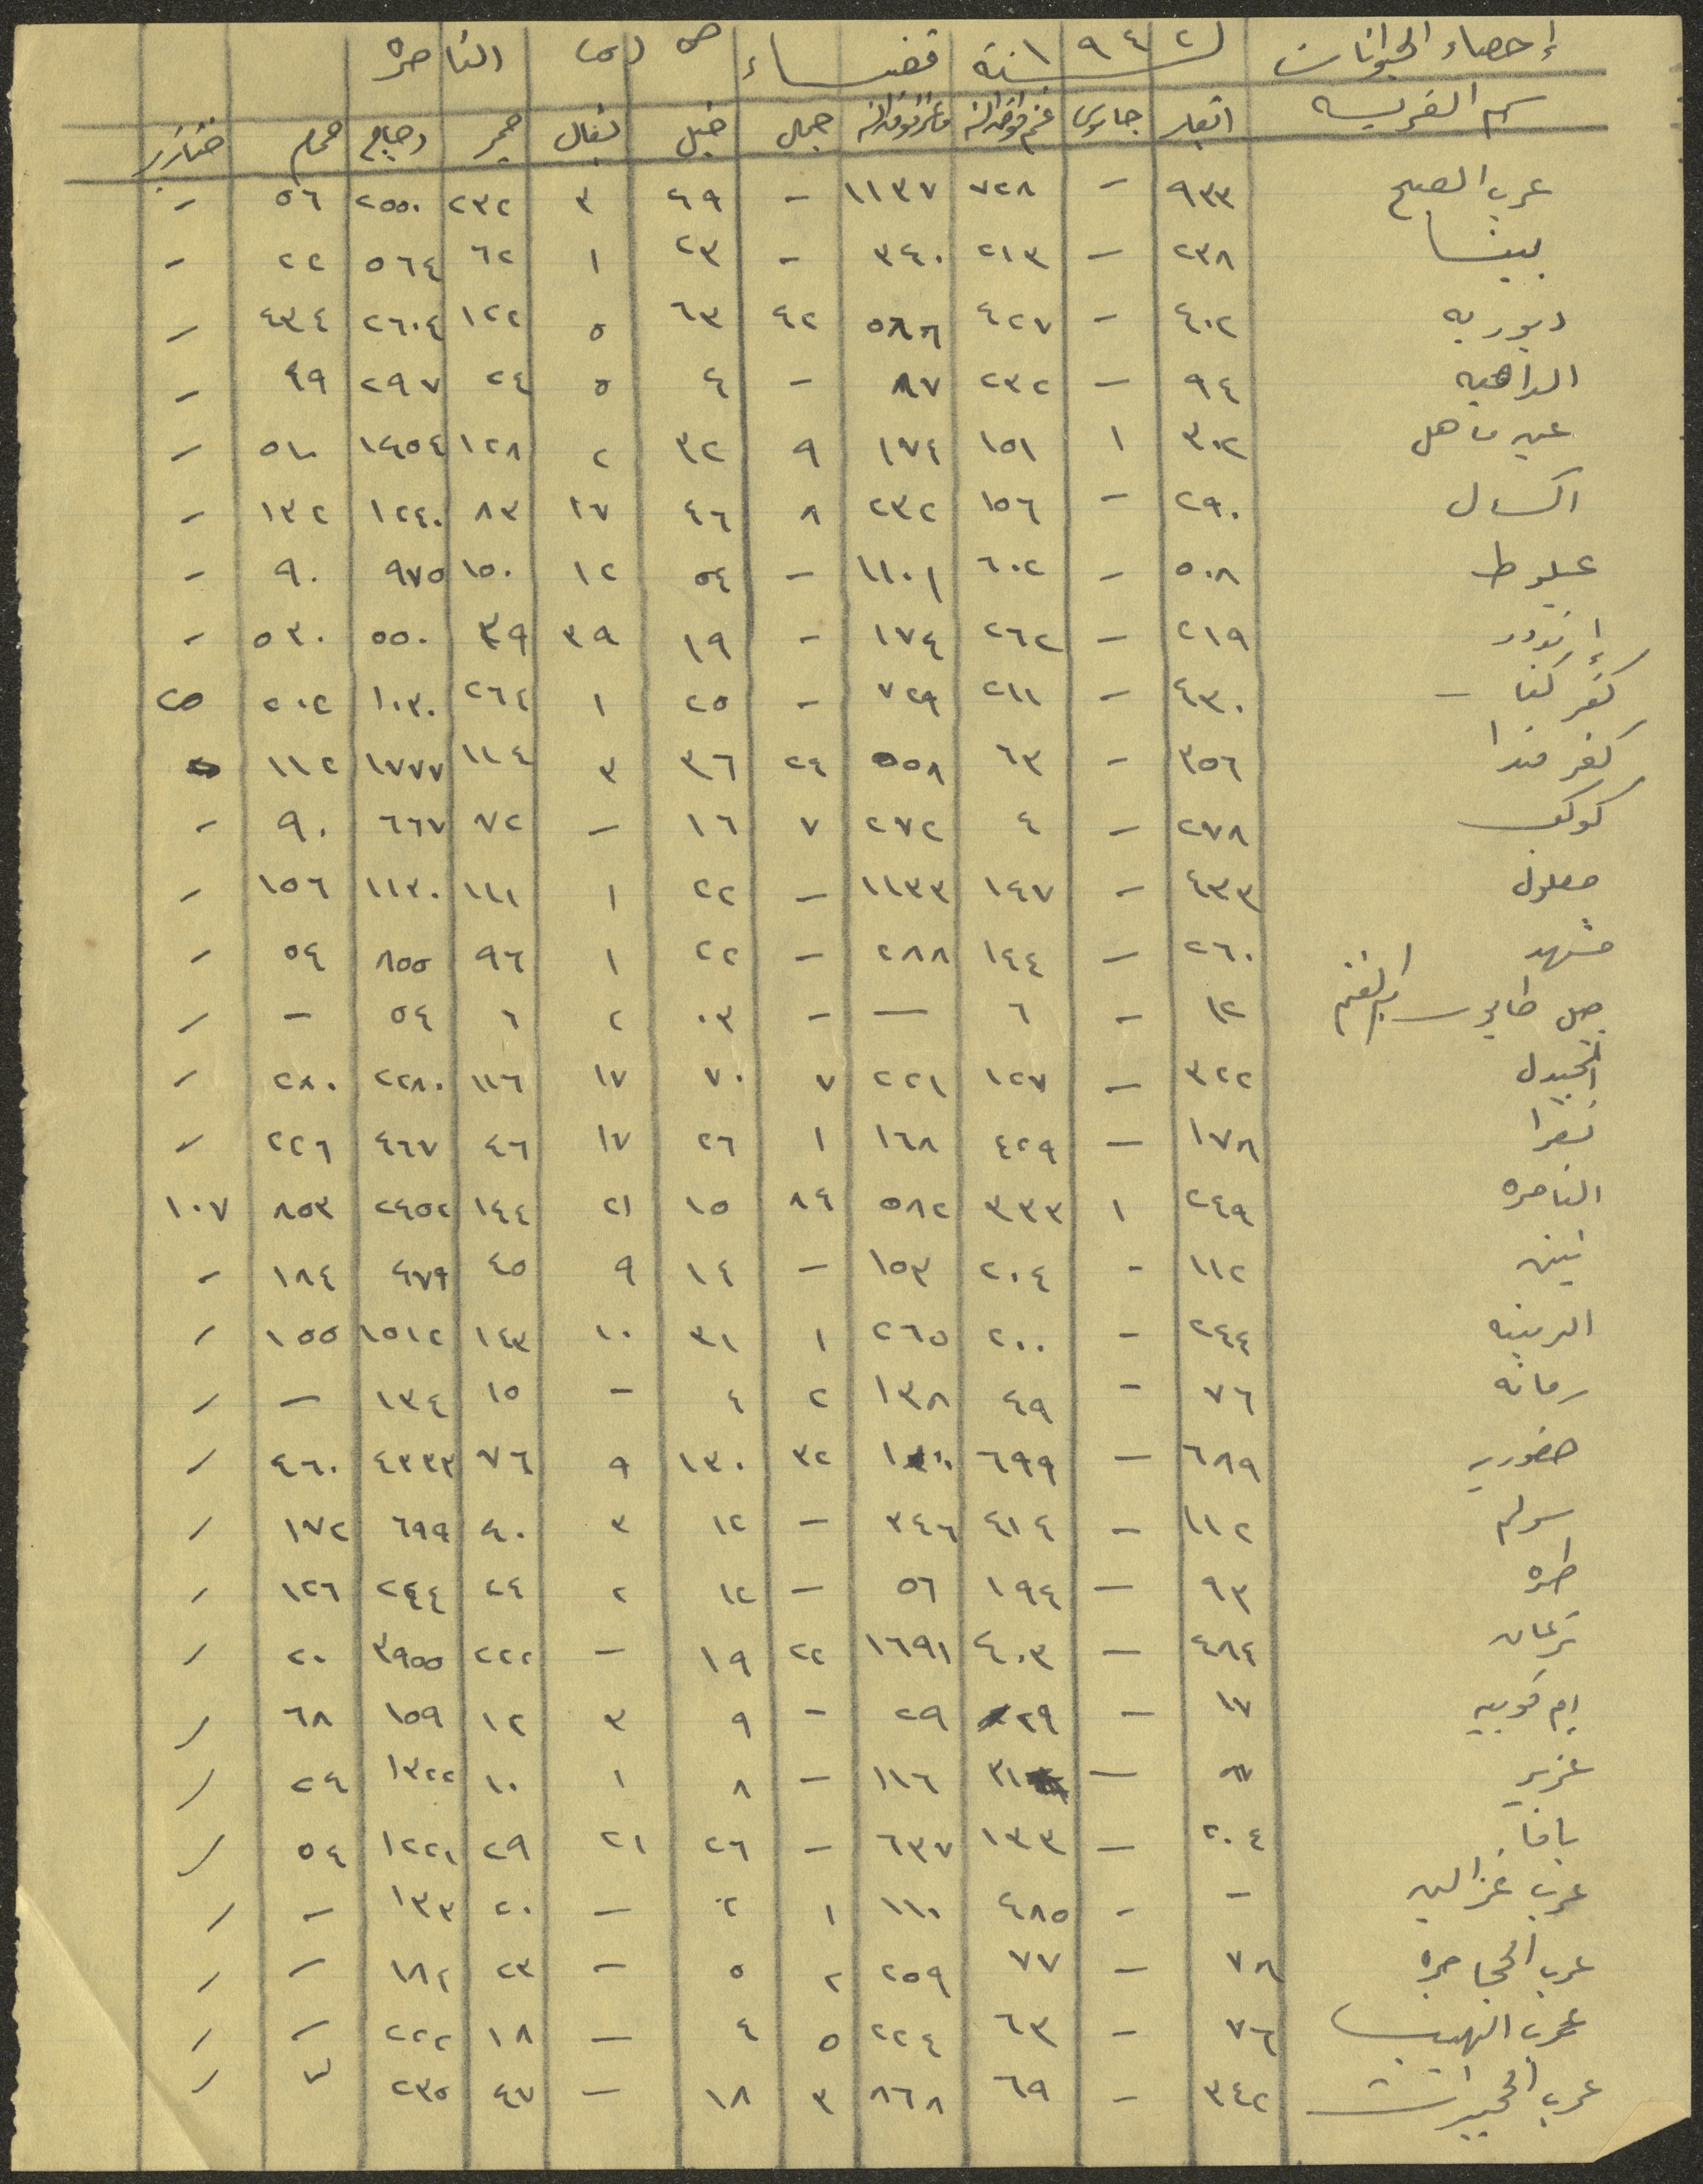 إحصاء الحيوانات لسنة ١٩٤٢ قضاء الناصره
اسم القريه ابقار جاموس غنم فوق السنه ماعز فوق السنه جمال خيل بغال حمير دجاج حمام خنازير
عرب الصبيح ٩٣٣ - ٧٢٨ ١١٣٧ - ٤٩ ٣ ٢٣٢ ٢٥٥٠ ٥٦ -
بينسا ٢٣٨ - ٢١٣ ٣٤٠ - ٢٣ ١ ٦٢ ٥٦٤ ٢٢ -
دبوريه ٤٠٢ - ٤٢٧ ٥٨٦ ٤٢ ٦٣ ٥ ١٢٢ ٢٦٠٤ ٤٣٤ -
الداهيه ٩٤ - ٢٣٢ ٨٧ - ٤ ٥ ٢٤ ٢٩٧ ٤٩ -
عين ماهل ٣٠٢ ١ ١٥١ ١٧٤ ٩ ٣٢ ٢ ١٢٨ ١٤٥٤ ٥١٠ -
اكسال ٢٩٠ - ١٥٦ ٢٣٢ ٨ ٤٦ ١٧ ٨٣ ١٢٤٠ ١٣٢ -
عيلوط ٥٠٨ - ٦٠٢ ١١٠١ - ٥٤ ١٢ ١٥٠ ٩٧٥ ٩٠ -
إندور ٢١٩ - ٢٦٢ ١٧٤ - ١٩ ٣٩ ٣٩ ٥٥٠ ٥٣٠ -
كفر كنا - ٤٣٠ - ٢١١ ٧٢٩ - ٢٥ ١ ٢٦٤ ١٠٣٠ ٢٠٢ ٢٥
كفر مندا ٣٥٦ - ٦٣ ٥٥٨ ٢٤ ٣٦ ٣ ١١٤ ١٧٧٧ ١١٢
كوكب ٢٧٨ - ٤ ٢٧٢ ٧ ١٦ - ٧٢ ٦٦٧ ٩٠ -
معلول ٤٣٣ - ١٤٧ ١١٣٣ - ٢٢ ١ ١١١ ١١٣٠ ١٥٦ -
مشهد ٢٦٠ - ١٤٤ ٢٨٨ - ٢٢ ١ ٩٦ ٨٥٥ ٥٤ -
جبل طابور ام الغنم ١٢ - ٦ - - ٠٣ ٢ ٦ ٥٤ - -
المجيدل ٣٢٢ - ١٢٧ ٢٢١ ٧ ٧٠ ١٧ ١١٦ ٢٢٨٠ ٢٨٠ -
نعورا ١٧٨ - ٤٢٩ ١٦٨ ١ ٢٦ ١٧ ٤٦ ٤٦٧ ٢٢٦ -
الناصره ٢٤٩ ١ ٣٣٣ ٥٨٢ ٨٤ ١٥ ٢١ ١٤٤ ٢٤٥٢ ٨٥٣ ١٠٧
نين ١١٢ - ٢٠٤ ١٥٣ - ١٤ ٩ ٤٥ ٤٧٩ ١٨٤ -
الرينه ٢٤٤ - ٢٠٠ ٢٦٥ ١ ٣١ ١٠ ١٤٣ ١٥١٢ ١٥٥ -
رمانه ٧٦ - ٤٩ ١٣٨ ٢ ٤ - ١٥ ١٣٤ - -
صفوريه ٦٨٩ - ٦٩٩ ٣٢ ١٣٠ ٩ ٧٦ ٤٣٣٣ ٤٦٠ -
سولم ١١٢ - ٤١٤ ٣٤٦ - ١٢ ٣ ٤٠ ٦٩٩ ١٧٢ -
طمره ٩٣ - ١٩٤ ٥٦ - ١٢ ٢ ٢٤ ٢٤٤ ١٢٦ -
ترعان ٤٨٤ - ٤٠٣ ١٦٩١ ٢٢ ١٩ - ٢٢٢ ٣٩٥٥ ٢٠ -
ام قوبيه ١٧ - ٢٩ ٢٩ - ٩ ٣ ١٢ ١٥٩ ٦٨ -
عزير - ٣١ ١١٦ - ٨ ١ ١٠ ١٣٢٢ ٢٤ -
يافا ٢٠٤ - ١٣٣ ٦٣٧ - ٢٦ ٢١ ٢٩ ١٢٢١ ٥٤ -
عرب غزالين - - ٤٨٥ ١١٠ ١ ٢ - ٢٠ ١٣٣ - -
عرب الحجاجره ٧٨ - ٧٧ ٢٥٩ ٢ ٥ - ٢٣ ١٨٢ - -
عرب الهيب ٧٦ - ٦٣ ٢٢٤ ٥ ٤ - ١٨ ٢٢٢ - -
عرب الحجيرات ٣٤٢ - ٦٩ ٨٦٨ ٣ ١٨ - ٤٧ ٢٣٥ -